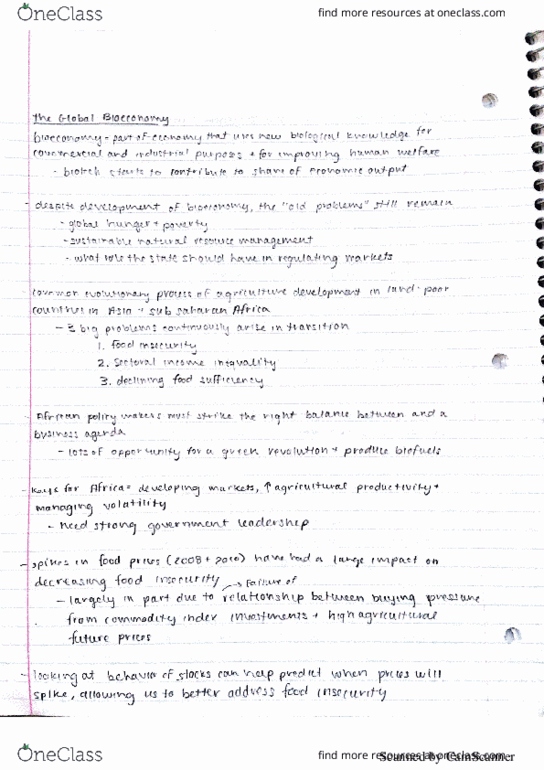 OneClass
find more resources at oneclass.com
The Global Bioeconomy
bioeconomy = part of economy that uses new biological knowledge for
commercial and industrial purposes + for improving human welfare
- biotech starts to contribute to share of economic output
- despite development of bioeconomy, the "old problems" still remain
- global hunger + poverty
- sustainable natural resource management
- what role the state should have in regulating markets
common evolutionary process of agriculture development in land-poor
countries in Asia + sub saharan Africa
- 3 big problems continuously arise in transition
1. food insecurity
2. sectoral income inequality
3. declining food sufficiency
- African policy makers must strike the right balance between and a
business agenda
- lots of opportunity for a green revolution + produce biofuels
- for Africa = developing markets, ↑ agricultural productivity +
managing volatility
- need strong government leadership
- spikes in food prices (2008 + 2010) have had a large impact on
decreasing food insecurity
→ failure of
- largely in part due to relationship between buying pressure
from commodity index investments + high agricultural
future prices
- looking at behavior of stocks can help predict when prices will
spike, allowing us to better address food insecurity
OneClass
find more resources at oneclass.com
Scanned by CamScanner